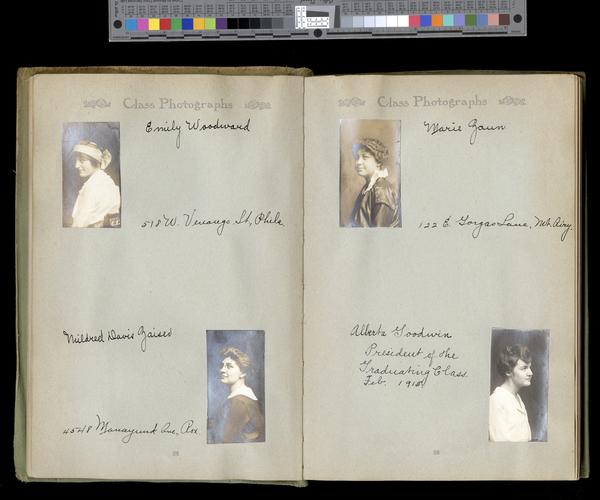 Class Photographs
Emily Woodward
518 W. Venango St., Phila.
Mildred Davis Zaiser
4548 Manayunk Ave., Rox.
Class Photographs
Marie Zaun
122 E. Gorgas Lane, Mt. Airy.
Alberta Goodwin
President of the
Graduating Class.
Feb. 1915.